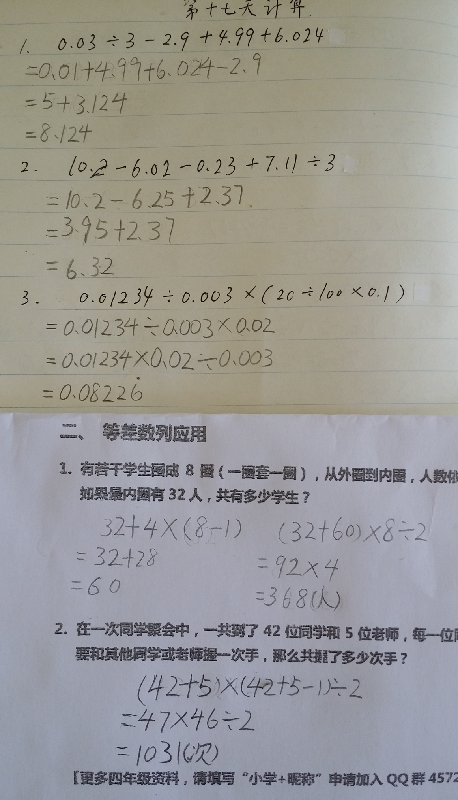 第十七天计算
1. 0.03÷3-2.9+4.99+6.024
=0.01+4.99+6.024-2.9
=5+3.124
=8.124
2. 10.2-6.02-0.23+7.11÷3
=10.2-6.25+2.37.
=3.95+2.37
=6.32
3. 0.01234÷0.003×(20÷100×0.1)
=0.01234÷0.003×0.02
=0.01234×0.02÷0.003
=0.08226̇
二、等差数列应用
1. 有若干学生围成 8 圈（一圈套一圈），从外圈到内圈，人数依
如果最内圈有 32 人，共有多少学生？
32+4×(8-1) (32+60)×8÷2
=32+28 =92×4
=60 =368(人)
2. 在一次同学聚会中，一共到了 42 位同学和 5 位老师，每一位同
要和其他同学或老师握一次手，那么共握了多少次手？
(42+5)×(42+5-1)÷2
=47×46÷2
=1031(次)
【更多四年级资料，请填写“小学+昵称”申请加入 QQ 群 4572